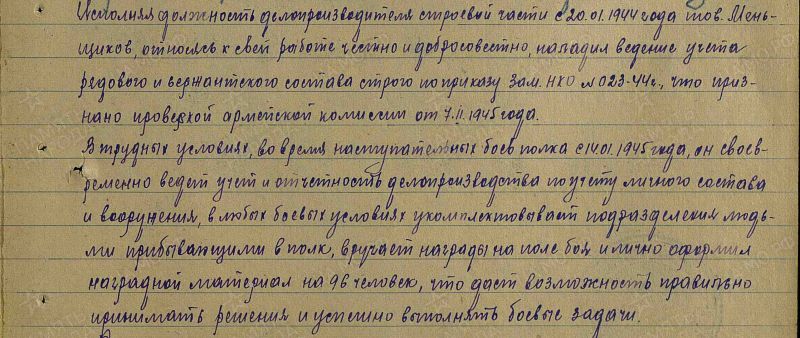 Исполняя должность делопроизводителя строевой части с 20.01.1944 года тов. Мень-
щиков, относясь к своей работе честно и добросовестно, наладил ведение учета
рядового и сержантского состава строго по приказу Зам. НКО № 023-44г., что приз-
нано проверкой армейской комиссии от 7.II.1945 года.
В трудных условиях, во время наступательных боев полка с 14.01.1945 года, он своев-
ременно ведет учет и отчетность делопроизводства по учету личного состава
и вооружения, в любых боевых условиях укомплектовывает подразделения людь-
ми прибывающими в полк, вручает награды на поле боя и лично оформил
наградной материал на 96 человек, что дает возможность правильно
принимать решения и успешно выполнять боевые задачи.